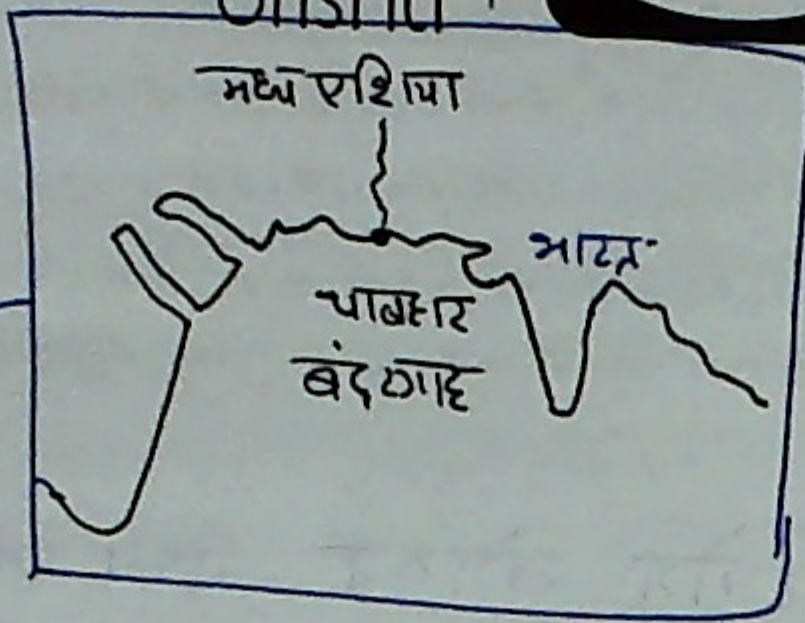 मध्य एशिया
भारत
चाबहार
बंदरगाह